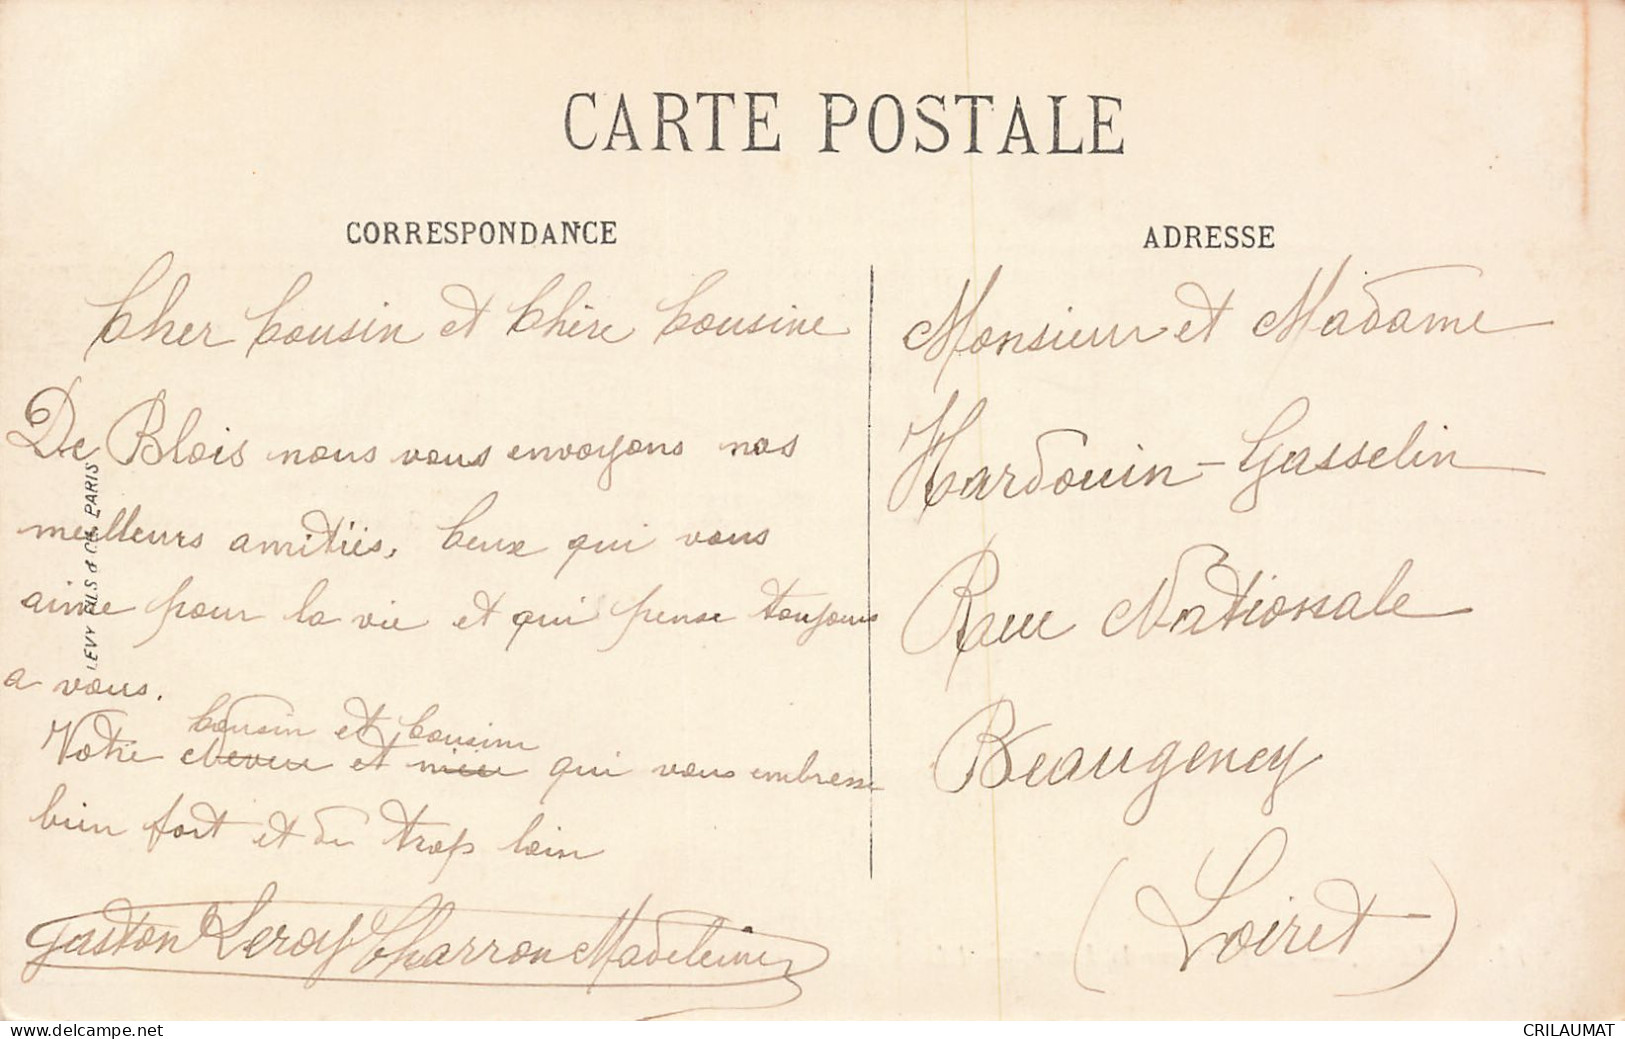 CARTE POSTALE
CORRESPONDANCE
Cher Cousin et Chère Cousine
De Blois nous vous envoyons nos
meilleurs amitiés. Ceux qui vous
aime pour la vie et qui pense toujours
a vous.
Cousin et Cousine
Votre neveu et niece qui vous embresse
bien fort et du trop loin
Gaston Leroy Charron Madeleine
LEVY FILS & Cie, PARIS
ADRESSE
Monsieur et Madame
Hardouin-Gasselin
Rue Nationale
Beaugency
(Loiret)
CRILAUMAT